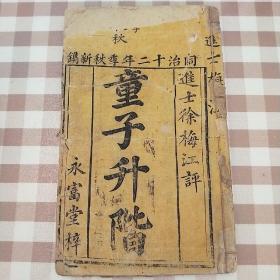 秋
同治十二年季秋新鐫
進士徐梅江評
童子升階
永富堂梓
進士梅